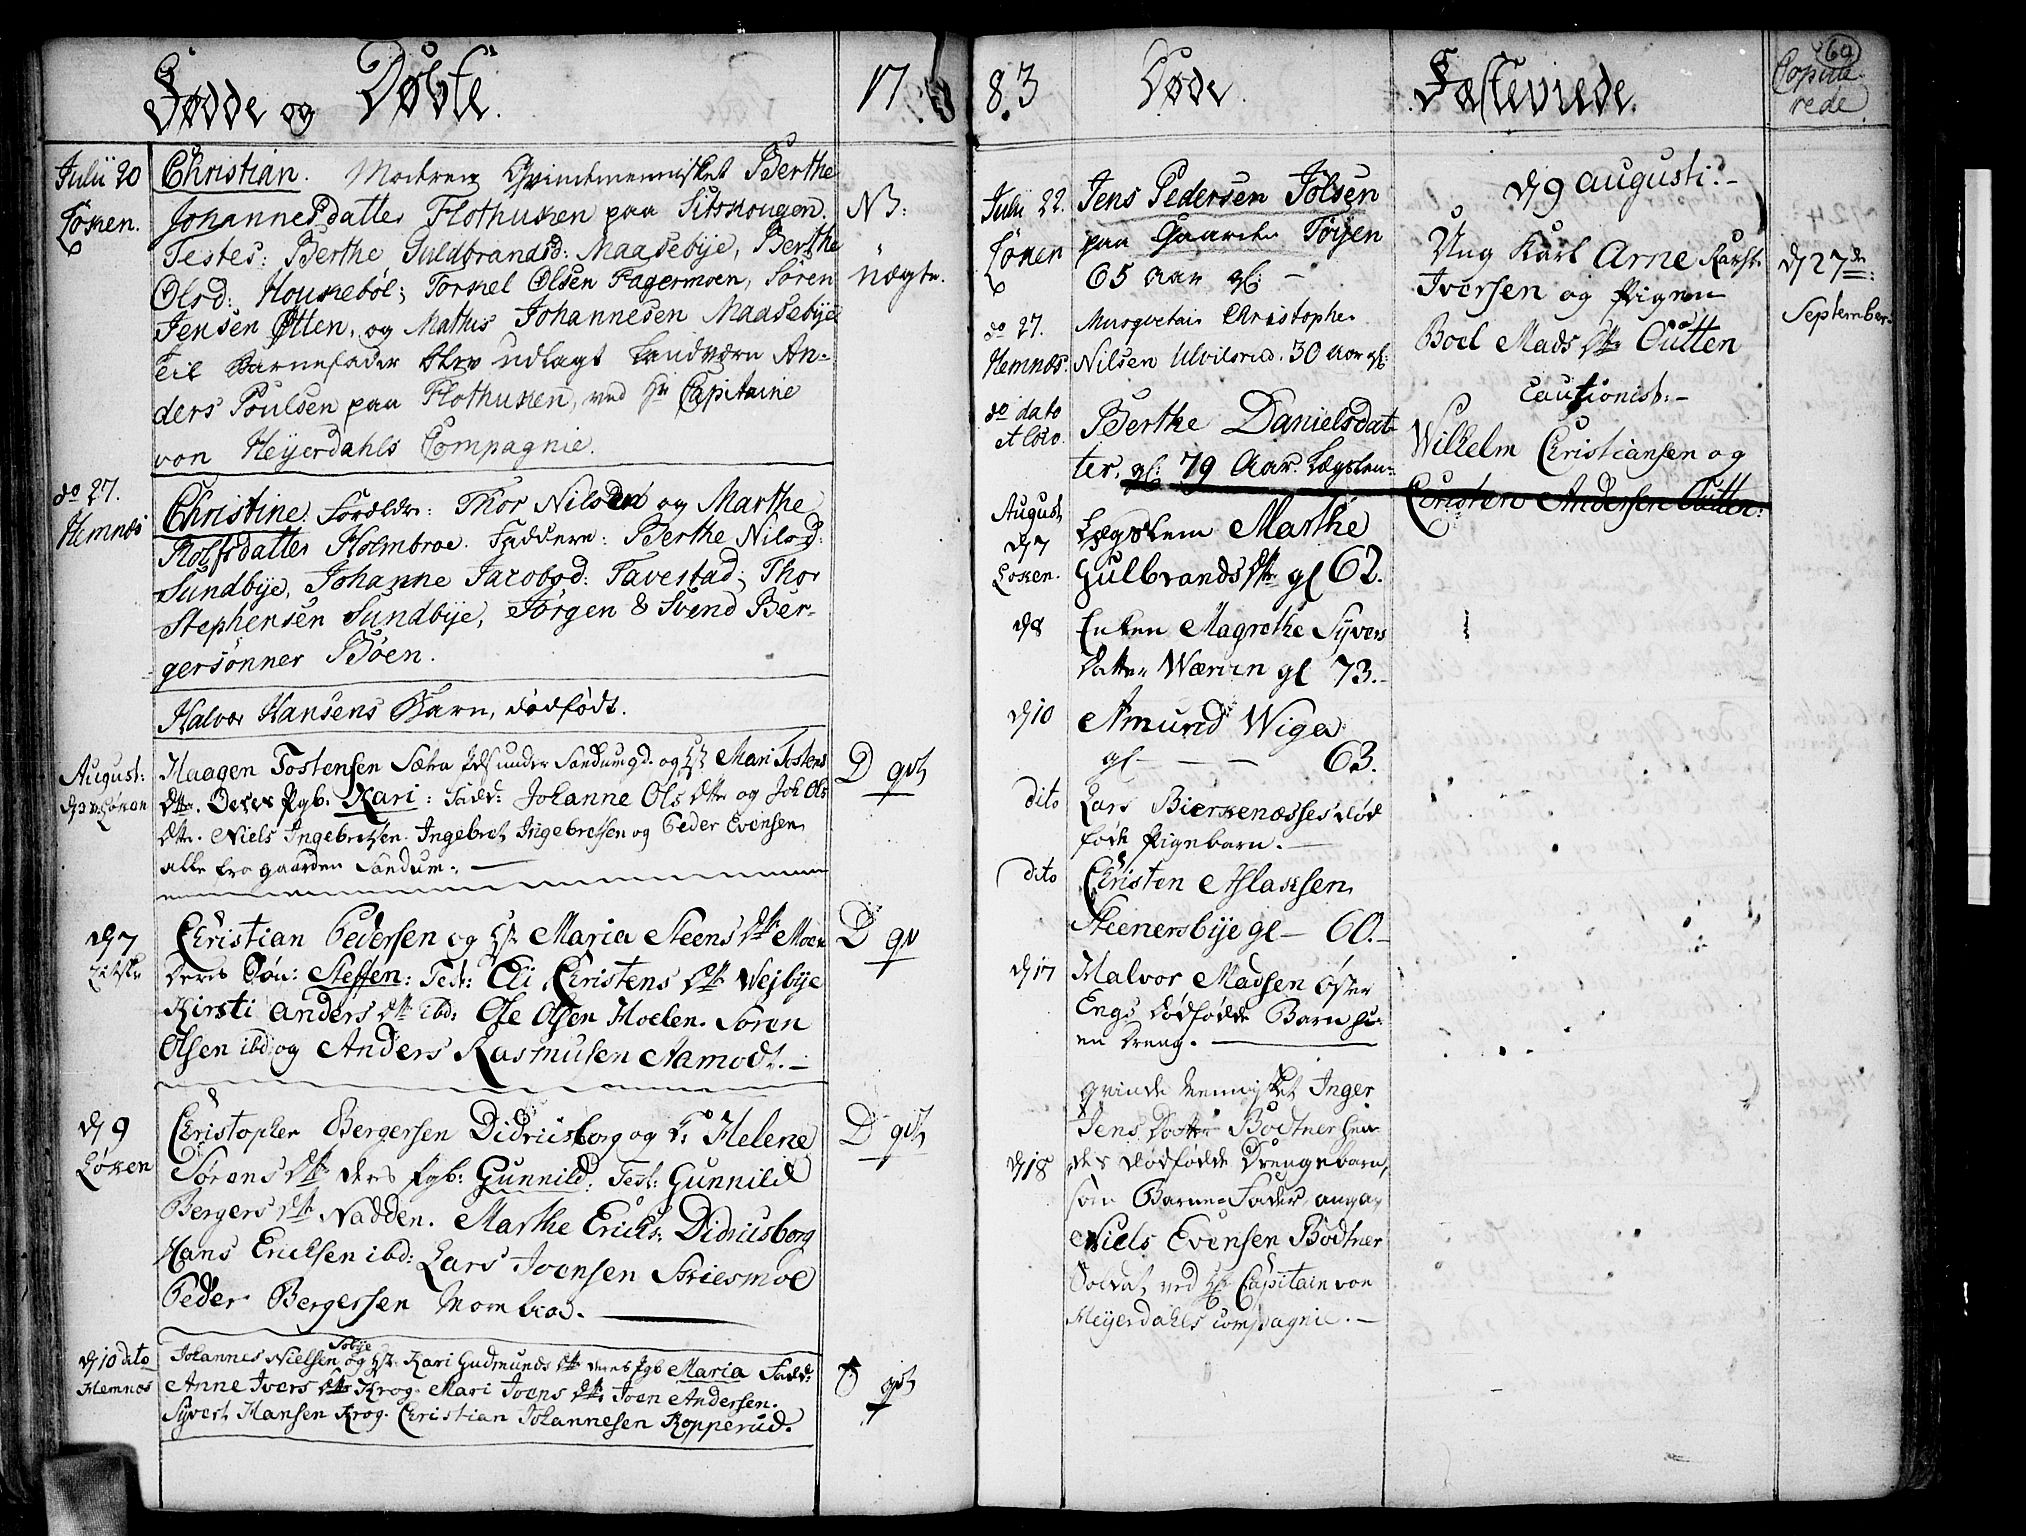 Fødde og Døbte.
17
Julii 20
Løken.
Christian. Modren Qvindemennisket Berthe
Johannesdatter Flothusen paa Sitskougen.
Testes: Berthe Guldbrandsd: Maasebÿe, Berthe
Olsd: Houkebøl; Torkel Olsen Fagermoen, Søren
Jensen Øtten, og Mathis Johannesen Maasebÿe
Til Barnefader blev udlagt Landværn An-
ders Poulsen paa Flothusen, ved Hr Capitaine
von Heÿerdahls Compagnie.
NB:
nægte.
do 27.
Hemnæs
Christine. Forældre: Thor Nilsen og Marthe
Rolfsdatter Holmbroe. Faddere: Berthe Nilsd:
Sundbÿe, Johanne Jacobsd: Tavestad; Thor
Stephensen Sundbÿe, Jørgen & Svend Ber-
gersønner Bøen.
Halvor Hansens Barn, dødfødt.
August:
Haagen Tostensen Sætra under Sandum og Mari Tostens
Dtr. Deres Pgb. Kari: Fadd: Johanne Ols Dtr og Joh Ols
Dtr. Niels Ingebretsen. Ingebret Ingebretsen og Peder Evensen
alle fra gaarden Sandum.
D
d 7
Christian Pedersen og Maria Steens Dtr Moen
Deres Søn: Steffen: Test: Eli Christens Dtr Wejbÿe
Kirsti Anders Dtr ibd: Ole Olsen Moelen. Søren
Olsen ibd: og Anders Rasmusen Aamodt.
D
d 9
Løken
Christopher Bergersen Didriksborg og H: Helene
Sørens Dtr ders Pgb: Gunnild: Test: Gunnild
Bergers Dtr Nadden. Marthe Ericks: Didriksborg
Hans Ericksen ibd: Lars Joensen Skriesmoe
Peder Bergersen
D
d 10 dito
Hemnæs
Sobÿe
Johannes Nielsen og Kari Gudmunds Dtr deres Pgb Maria Fadd:
Anne Ivers Dtr Krog. Mari Joens Dtr Joen Andersen.
Sÿvert Hansen Krog. Christian Johannesen Kopperud.
83
Døde.
Fæsteviede.
69
Copule-
rede.
Julii 22.
Løken
Jens Pedersen Jølsen
paa Gaarden Tøyen
65 aar gl:
do 27.
Hemnæs.
Musqveteir Christopher
Nilsen Ulvilsrud. 30 aar gl:
do dato
et loco.
Berthe Danielsdat-
ter, gl: 79 Aar. Lægslem:
August,
d 7
Løken.
Lægslem Marthe
Gulbrands Dtr gl 62.
d 8
Enken Magrethe Sÿvers
Datter Wærven gl 73.
d 10
Amund Wiger
gl 63.
dito
Lars Bierkenæsses død
fødte Pigebarn.
dito
Christen Aslaksen
Steenersbÿe gl 60.
d 17
Halvor Madsen Øster
Engs dødfødde Barn
en Dreng.
d 18
Qvinde Mennisket Inger
Jens Datter Bødtner hen
des dødfødde Drengebarn,
som Barne-Fader angav
Niels Evensen Bødtner
Soldat ved Hr Capitain von
Heÿerdahls Compagnie.
d 9 Augusti.
Ung Karl Arne Karst.
Iversen og Pigen
Boel Mads Dtr Øütten
Cautionist:
Wilhelm Christiansen og
Christen Andersen Øütten:
d 27de:
September.